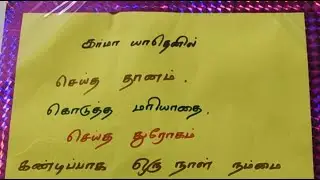 கர்மா யாதெனில்
செய்த தானம்.
கொடுத்த மரியாதை,
செய்த துரோகம்
கண்டிப்பாக ஒரு நாள் நம்மை